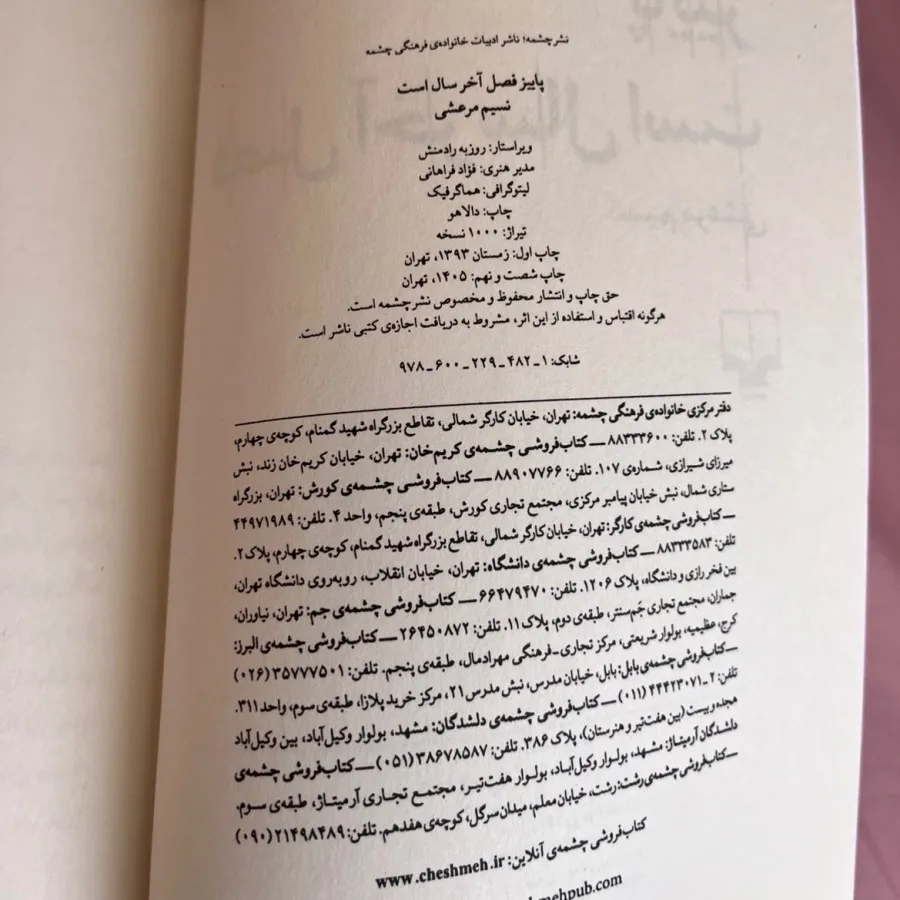 نشرچشمه؛ ناشر ادبیات خانواده‌ی فرهنگی چشمه
پاییز فصل آخر سال است
نسیم مرعشی
ویراستار: روزبه رادمنش
مدیر هنری: فؤاد فراهانی
لیتوگرافی: هماگرافیک
چاپ: دالاهو
تیراژ: ۱۰۰۰ نسخه
چاپ اول: زمستان ۱۳۹۳، تهران
چاپ شصت و نهم: ۱۴۰۵، تهران
حق چاپ و انتشار محفوظ و مخصوص نشرچشمه است.
هرگونه اقتباس و استفاده از این اثر، مشروط به دریافت اجازه‌ی کتبی ناشر است.
شابک: ۱ـ۴۸۲ـ۲۲۹ـ۶۰۰ـ۹۷۸
دفتر مرکزی خانواده‌ی فرهنگی چشمه: تهران، خیابان کارگر شمالی، تقاطع بزرگراه شهید گمنام، کوچه‌ی چهارم،
پلاک ۲. تلفن: ۸۸۳۳۳۶۰۰ ــ کتاب‌فروشی چشمه‌ی کریم‌خان: تهران، خیابان کریم‌خان زند، نبش
میرزای شیرازی، شماره‌ی ۱۰۷. تلفن: ۸۸۹۰۷۷۶۶ ــ کتاب‌فروشی چشمه‌ی کورش: تهران، بزرگراه
ستاری شمال، نبش خیابان پیامبر مرکزی، مجتمع تجاری کورش، طبقه‌ی پنجم، واحد ۴. تلفن: ۴۴۹۷۱۹۸۹
ــ کتاب‌فروشی چشمه‌ی کارگر: تهران، خیابان کارگر شمالی، تقاطع بزرگراه شهید گمنام، کوچه‌ی چهارم، پلاک ۲.
تلفن: ۸۸۳۳۳۵۸۳ ــ کتاب‌فروشی چشمه‌ی دانشگاه: تهران، خیابان انقلاب، روبه‌روی دانشگاه تهران،
بین فخر رازی و دانشگاه، پلاک ۱۲۰۶. تلفن: ۶۶۴۷۹۴۷۰ ــ کتاب‌فروشی چشمه‌ی جم: تهران، نیاوران،
جماران، مجتمع تجاری جَم‌سنتر، طبقه‌ی دوم، پلاک ۱۱. تلفن: ۲۶۴۵۰۸۷۲ ــ کتاب‌فروشی چشمه‌ی البرز:
کرج، عظیمیه، بولوار شریعتی، مرکز تجاری ـ فرهنگی مهرادمال، طبقه‌ی پنجم. تلفن: ۳۵۷۷۷۵۰۱ (۰۲۶)
ــ کتاب‌فروشی چشمه‌ی بابل: بابل، خیابان مدرس، نبش مدرس ۲۱، مرکز خرید پلازا، طبقه‌ی سوم، واحد ۳۱۱.
تلفن: ۲ـ۴۴۴۲۳۰۷۱ (۰۱۱) ــ کتاب‌فروشی چشمه‌ی دلشدگان: مشهد، بولوار وکیل‌آباد، بین وکیل‌آباد
هجده و بیست (بین هفت‌تیر و هنرستان)، پلاک ۳۸۶. تلفن: ۳۸۶۷۸۵۸۷ (۰۵۱) ــ کتاب‌فروشی چشمه‌ی
دلشدگان آرمیتاژ: مشهد، بولوار وکیل‌آباد، بولوار هفت‌تیر، مجتمع تجاری آرمیتاژ، طبقه‌ی سوم.
ــ کتاب‌فروشی چشمه‌ی رشت: رشت، خیابان معلم، میدان سرگل، کوچه‌ی هفدهم. تلفن: ۲۱۴۹۸۴۸۹ (۰۹۰)
کتاب‌فروشی چشمه‌ی آنلاین: www.cheshmeh.ir